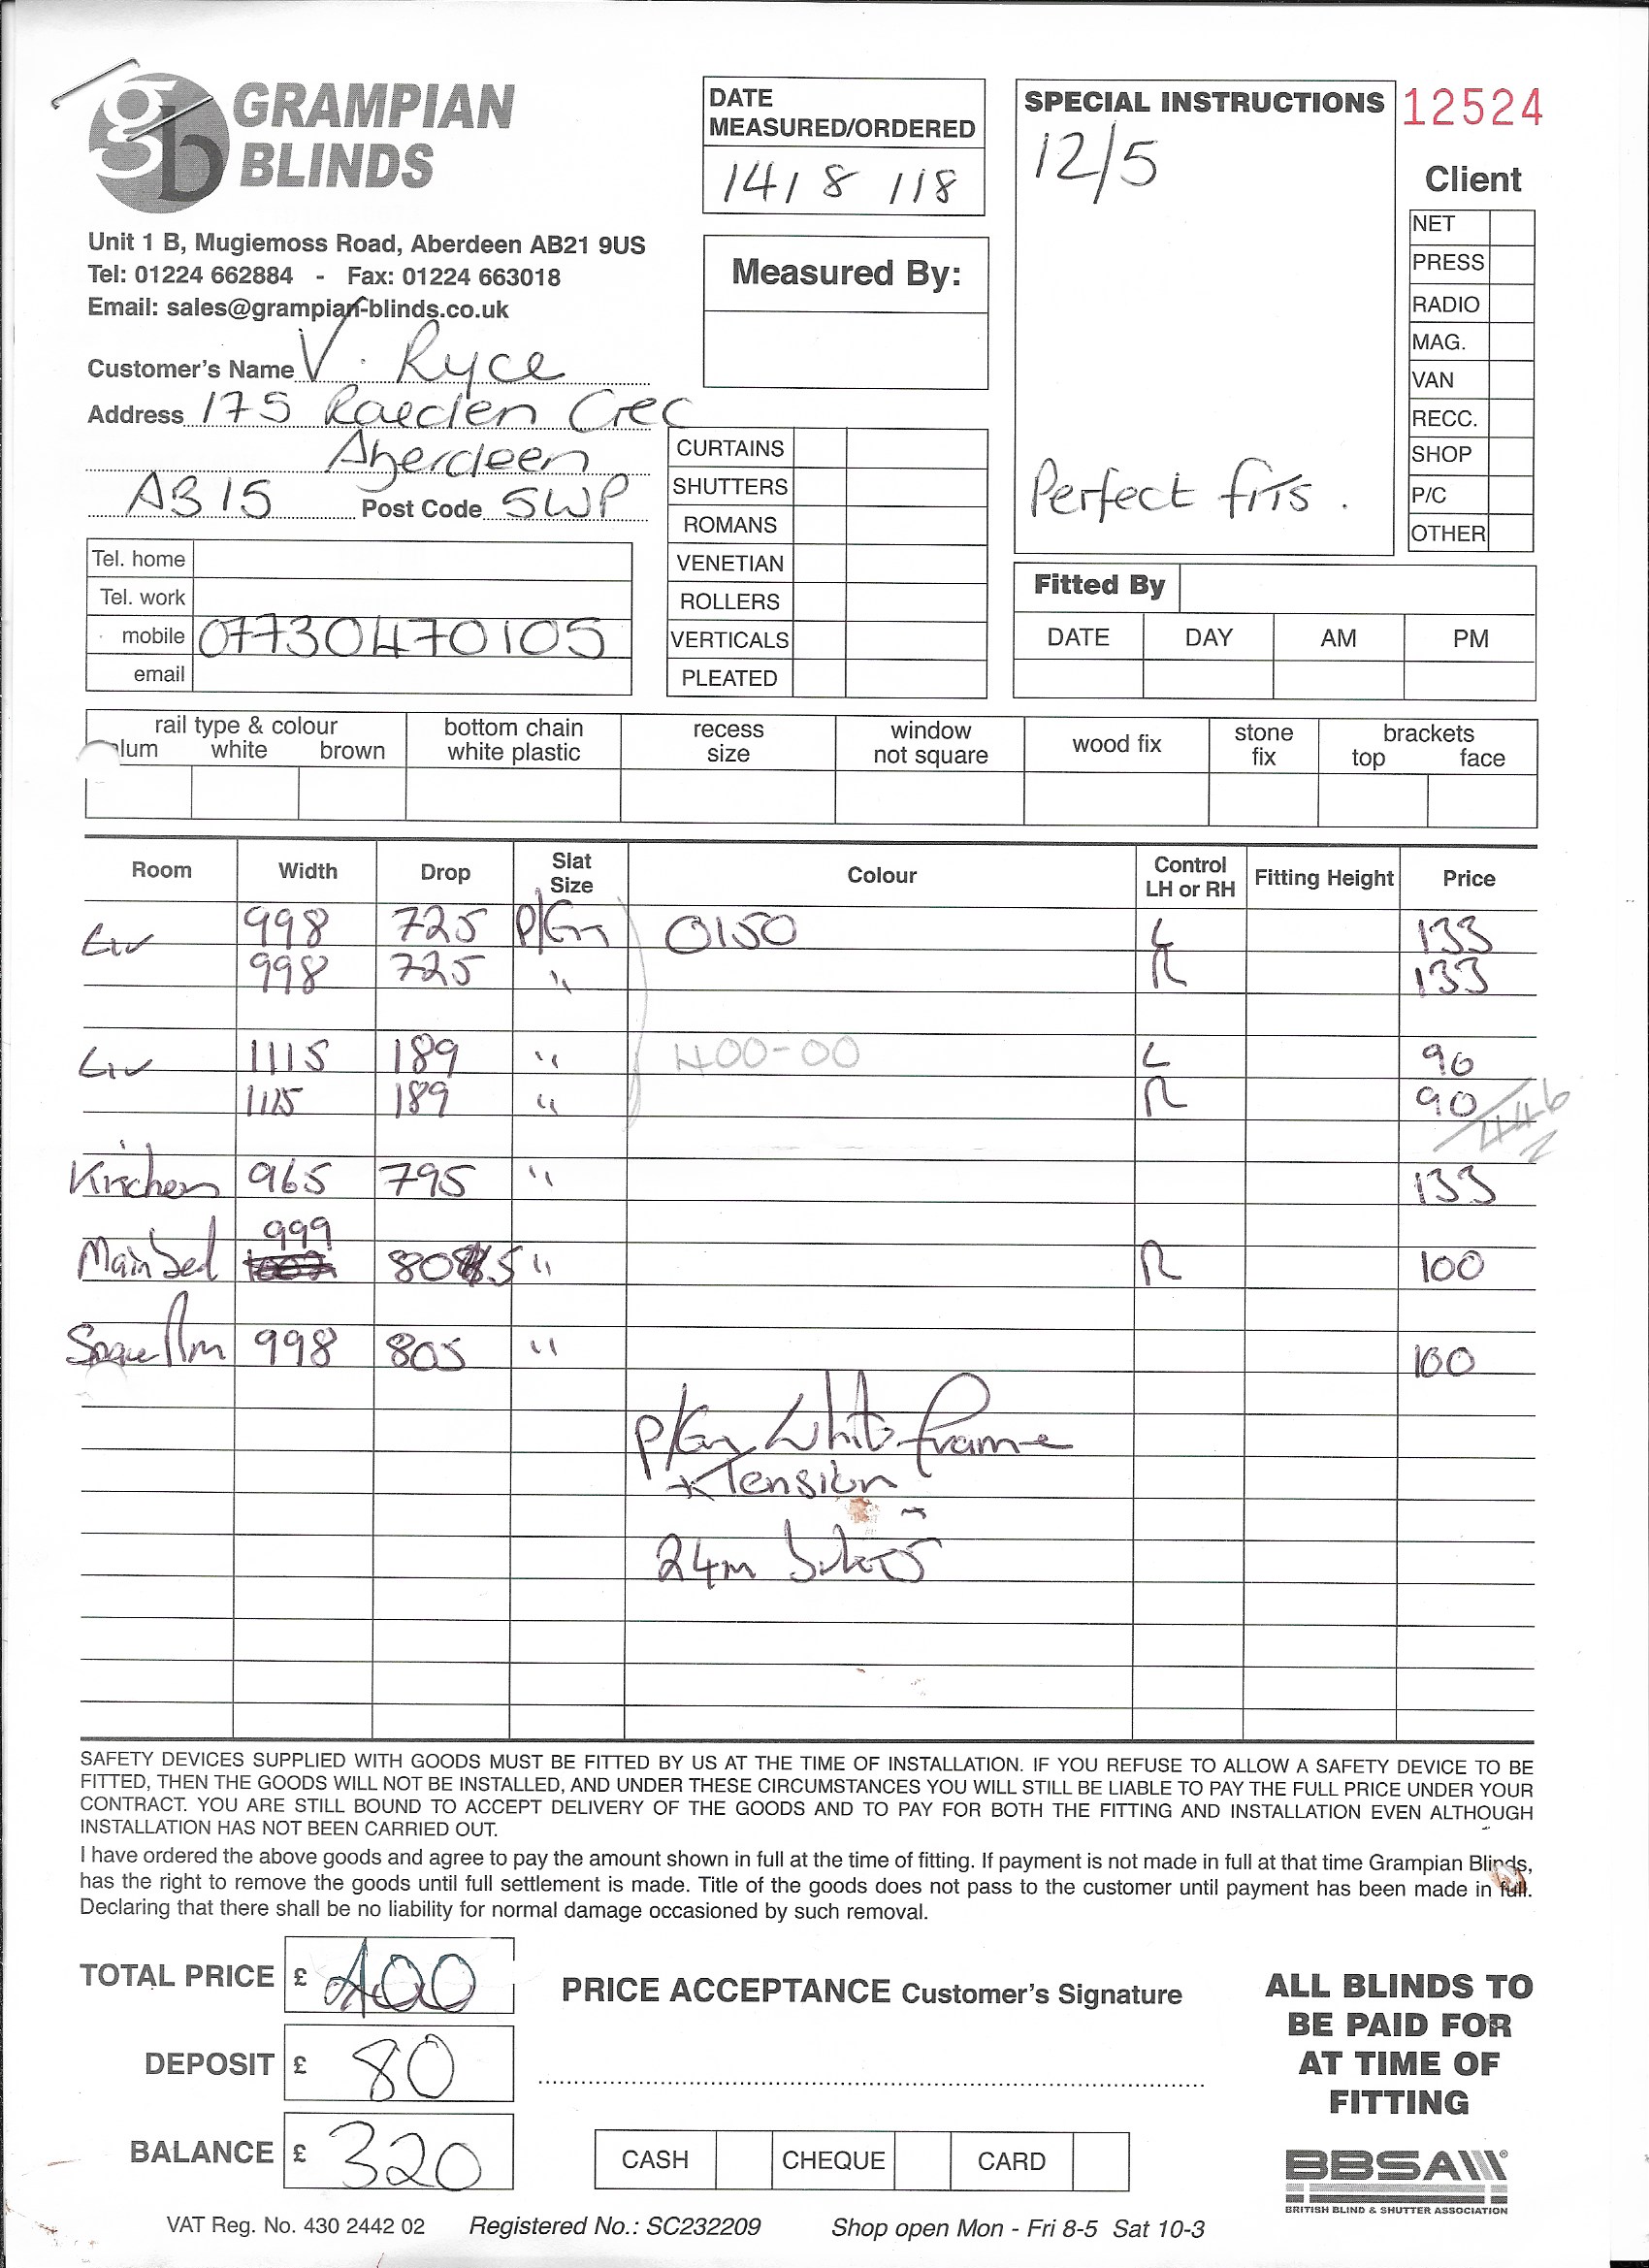 gb GRAMPIAN
BLINDS
Unit 1 B, Mugiemoss Road, Aberdeen AB21 9US
Tel: 01224 662884 - Fax: 01224 663018
Email: sales@grampian-blinds.co.uk
Customer's Name V. Ryce
Address 175 Raeden Cres
Aberdeen
AB15 Post Code 5WP
Tel. home
Tel. work
mobile 07730470105
email
DATE
MEASURED/ORDERED
14/8/18
Measured By:
CURTAINS
SHUTTERS
ROMANS
VENETIAN
ROLLERS
VERTICALS
PLEATED
SPECIAL INSTRUCTIONS
12/5
Perfect fits.
12524
Client
NET
PRESS
RADIO
MAG.
VAN
RECC.
SHOP
P/C
OTHER
Fitted By
DATE DAY AM PM
rail type & colour bottom chain recess window wood fix stone brackets
lum white brown white plastic size not square fix top face
Room Width Drop Slat Size Colour Control LH or RH Fitting Height Price
Liv 998 725 P/Gn 0150 L 133
998 725 " R 133
Liv 1115 189 " 400-00 L 90
1115 189 " R 90
446
Kitchen 965 795 " 133
999
Main bed 805 " R 100
Spare Rm 998 805 " 100
White frame
* Tension
24m
SAFETY DEVICES SUPPLIED WITH GOODS MUST BE FITTED BY US AT THE TIME OF INSTALLATION. IF YOU REFUSE TO ALLOW A SAFETY DEVICE TO BE
FITTED, THEN THE GOODS WILL NOT BE INSTALLED, AND UNDER THESE CIRCUMSTANCES YOU WILL STILL BE LIABLE TO PAY THE FULL PRICE UNDER YOUR
CONTRACT. YOU ARE STILL BOUND TO ACCEPT DELIVERY OF THE GOODS AND TO PAY FOR BOTH THE FITTING AND INSTALLATION EVEN ALTHOUGH
INSTALLATION HAS NOT BEEN CARRIED OUT.
I have ordered the above goods and agree to pay the amount shown in full at the time of fitting. If payment is not made in full at that time Grampian Blinds,
has the right to remove the goods until full settlement is made. Title of the goods does not pass to the customer until payment has been made in full.
Declaring that there shall be no liability for normal damage occasioned by such removal.
TOTAL PRICE £ 400
DEPOSIT £ 80
BALANCE £ 320
PRICE ACCEPTANCE Customer's Signature
CASH CHEQUE CARD
ALL BLINDS TO
BE PAID FOR
AT TIME OF
FITTING
BBSA
BRITISH BLIND & SHUTTER ASSOCIATION
VAT Reg. No. 430 2442 02 Registered No.: SC232209 Shop open Mon - Fri 8-5 Sat 10-3